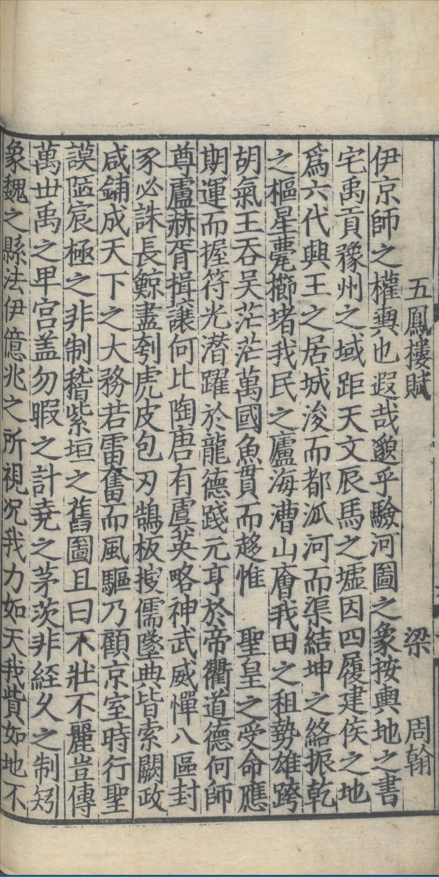 五鳳樓賦　梁　周翰
伊京師之權輿也遐哉邈乎驗河圖之象按輿地之書
宅禹貢豫州之域距天文辰馬之墟因四履建侯之地
爲六代興王之居城浚而都派河而渠結坤之絡振乾
之樞星甍櫛堵我民之廬海漕山廥我田之租勢雄跨
胡氣王吞吳茫茫萬國魚貫而趍惟　聖皇之受命應
期運而握符光潜躍於龍德踐元亨於帝衢道德何師
尊盧赫胥揖讓何比陶唐有虞英略神武威憚八區封
豕必誅長鯨盡刳虎皮包刃鵠板搜儒墜典皆索闕政
咸鋪成天下之大務若雷奮而風驅乃顧京室時行聖
謨陋宸極之非制稽紫垣之舊圖且曰不壯不麗豈傳
萬世禹之卑宮盖勿暇之計堯之茅茨非経久之制矧
象魏之縣法伊億兆之所視况我力如天我貲如地不